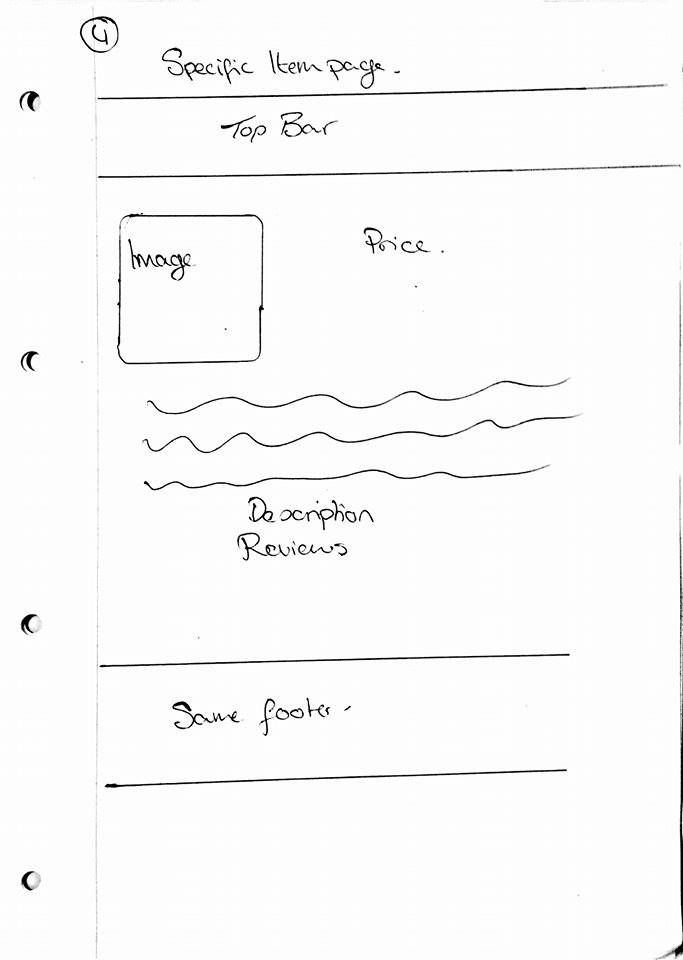 4
Specific Item page.
Top Bar
Image
Price.
Description
Reviews
Same footer.